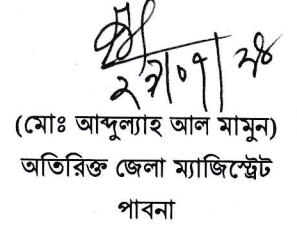 (মোঃ আব্দুল্যাহ আল মামুন)
অতিরিক্ত জেলা ম্যাজিস্ট্রেট
পাবনা